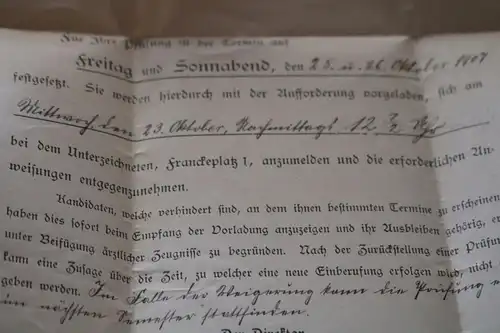 Für Ihre Prüfung ist der Termin auf
Freitag und Sonnabend, den 25. u. 26. Oktober 1907
festgesetzt. Sie werden hierdurch mit der Aufforderung vorgeladen, sich am
Mittwoch, den 23. Oktober, Nachmittags 12 ½ Uhr
bei dem Unterzeichneten, Franckeplatz 1, anzumelden und die erforderlichen An-
weisungen entgegenzunehmen.
Kandidaten, welche verhindert sind, an dem ihnen bestimmten Termine zu erscheinen
haben dies sofort beim Empfang der Vorladung anzuzeigen und ihr Ausbleiben gehörig,
unter Beifügung ärztlicher Zeugnisse zu begründen. Nach der Zurückstellung einer Prüfun
kann eine Zusage über die Zeit, zu welcher eine neue Einberufung erfolgen wird, nicht
geben werden. Im Falle der Weigerung kann die Prüfung e
im nächsten Semester stattfinden.
Der Direktor